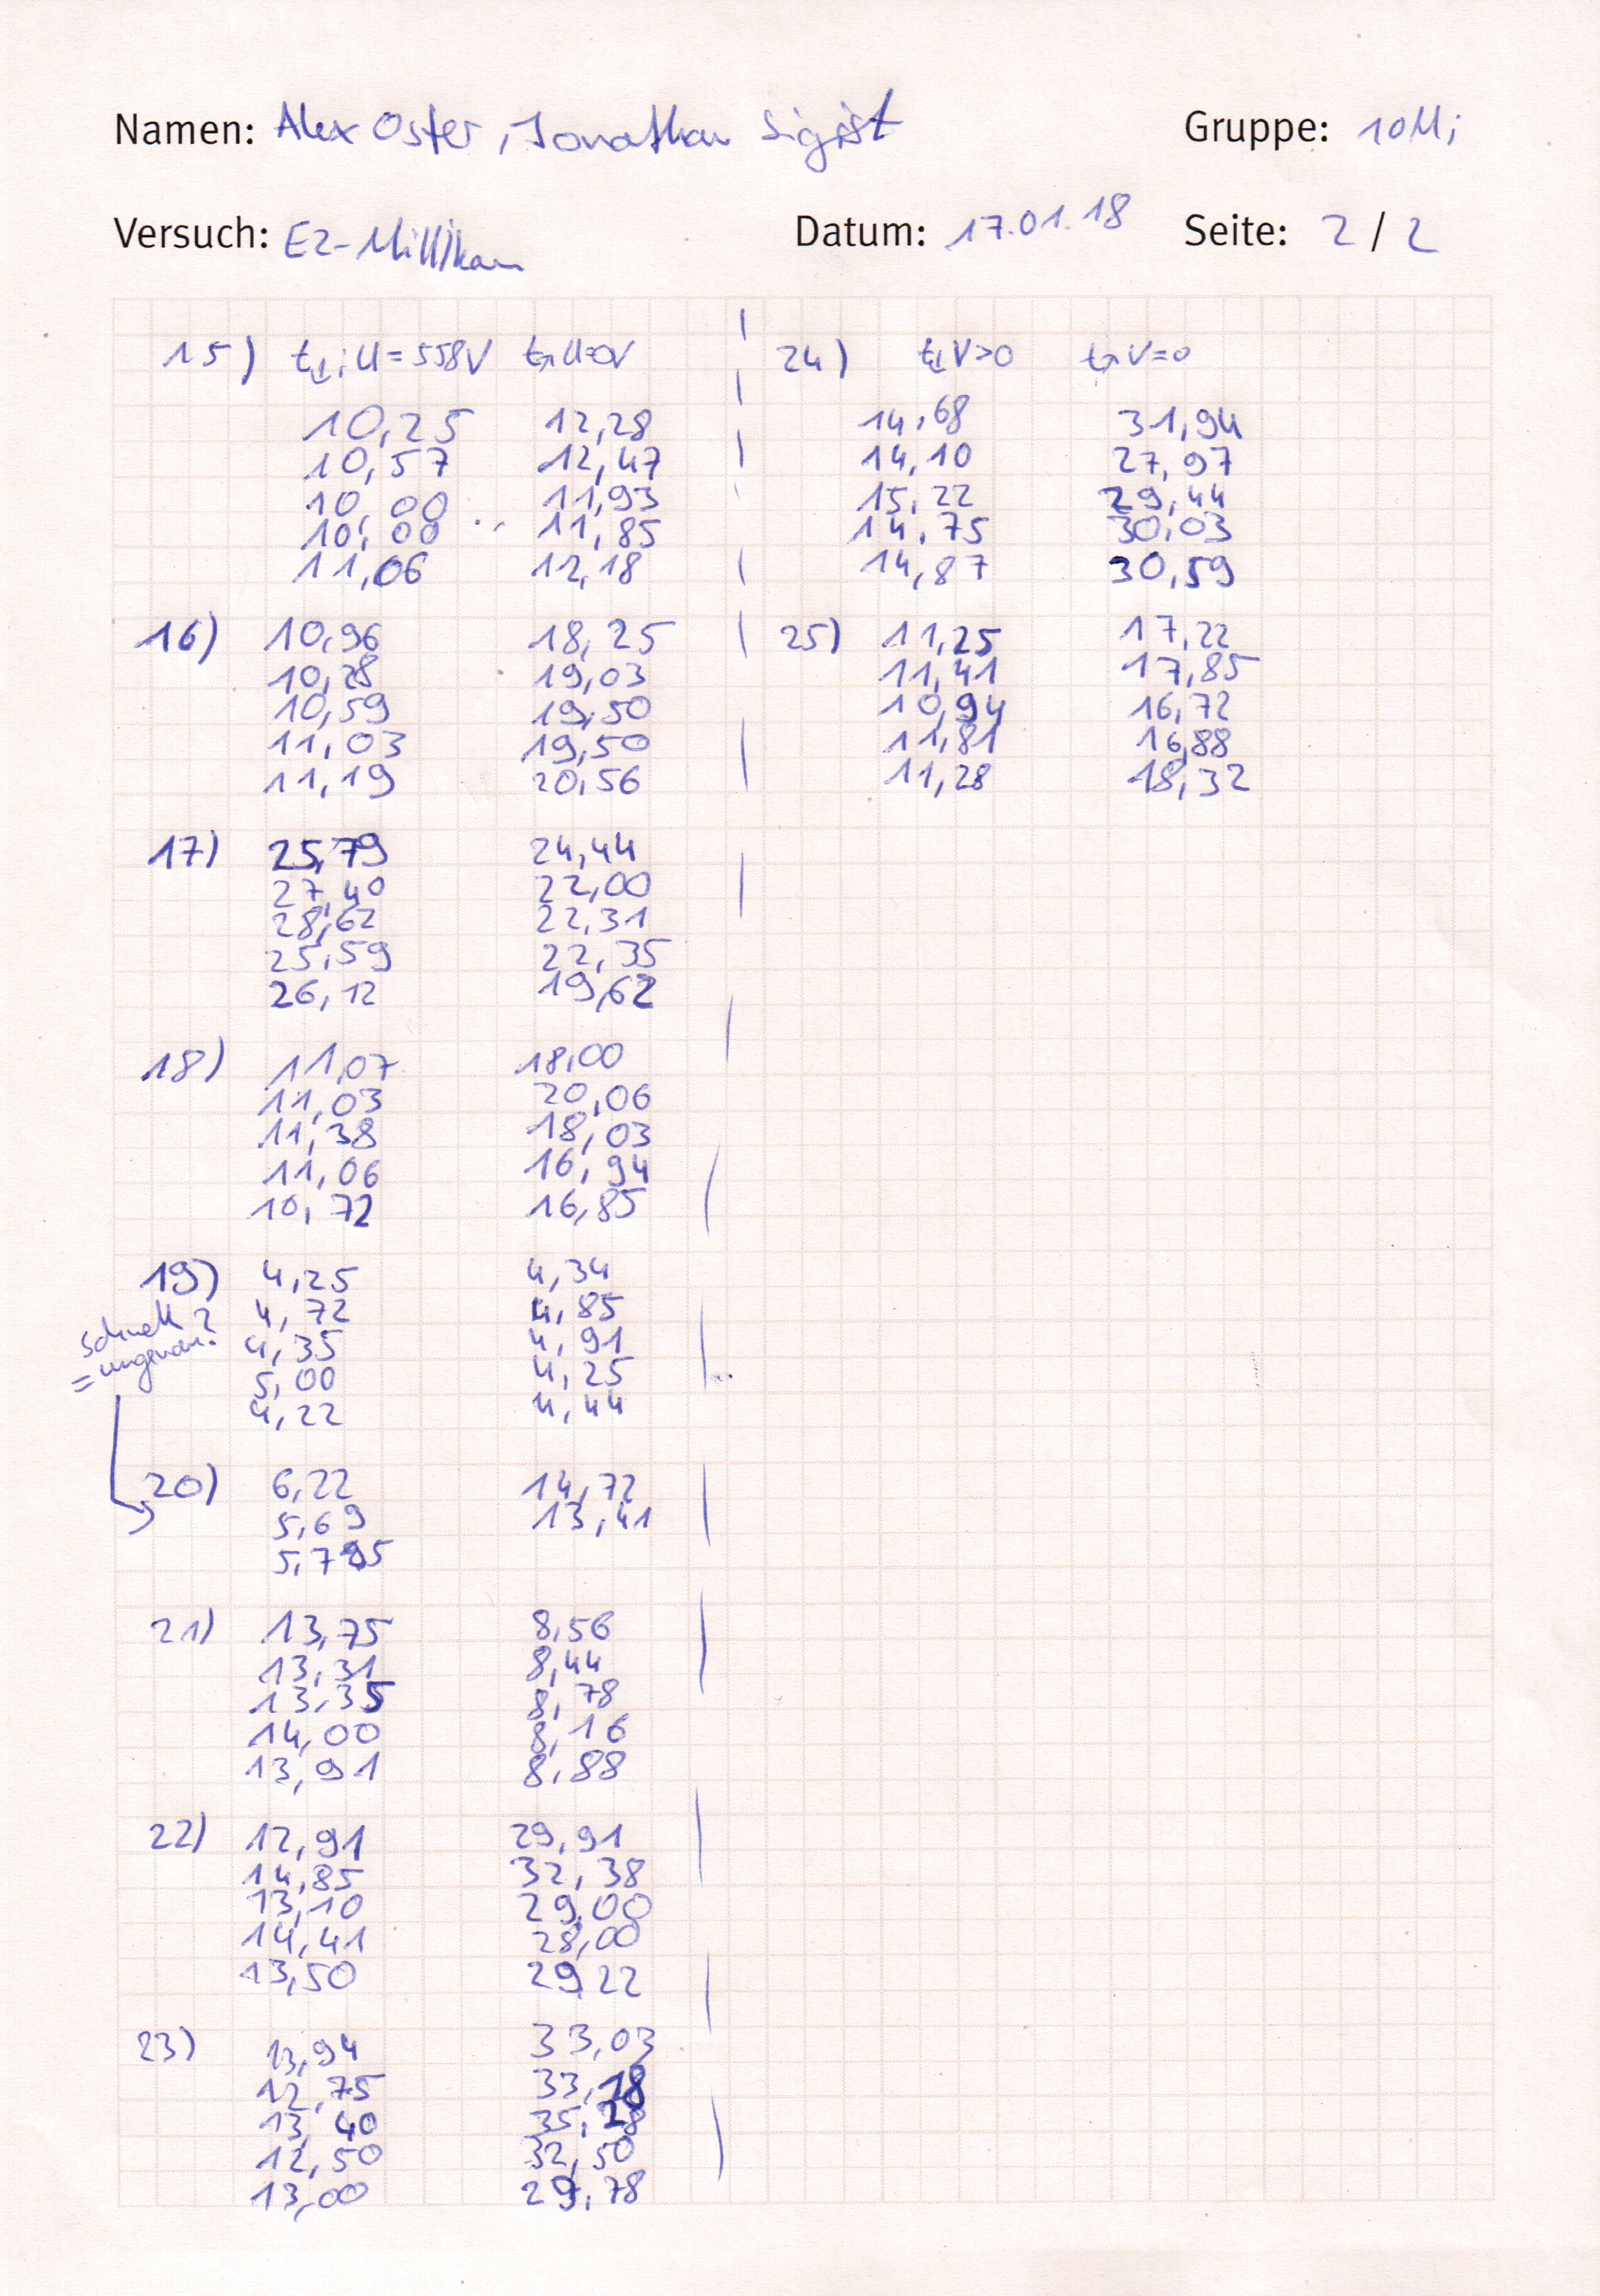 Namen: Alex Oster, Jonathan Sigrist Gruppe: 10Mi
Versuch: E2-Millikan Datum: 17.01.18 Seite: 2 / 2
15) t↓; U=558V t↑ U=0V
10,25 12,28
10,57 12,47
10,00 11,93
10,00 11,85
11,06 12,18
16) 10,96 18,25
10,28 19,03
10,59 19,50
11,03 19,50
11,19 20,56
17) 25,79 24,44
27,40 22,00
28,62 22,31
25,59 22,35
26,12 19,62
18) 11,07 18,00
11,03 20,06
11,38 18,03
11,06 16,94
10,72 16,85
19) 4,25 4,34
4,72 4,85
4,35 4,91
5,00 4,25
4,22 4,44
schnell
= ungenau?
20) 6,22 14,72
5,69 13,41
5,795
21) 13,75 8,56
13,31 8,44
13,35 8,78
14,00 8,16
13,91 8,88
22) 12,91 29,91
14,85 32,38
13,10 29,00
14,41 28,00
13,50 29,22
23) 13,94 33,03
12,75 33,18
13,40 35,28
12,50 32,50
13,00 29,78
24) t↓ V>0 t↑ V=0
14,68 31,94
14,10 27,97
15,22 29,44
14,75 30,03
14,87 30,59
25) 11,25 17,22
11,41 17,85
10,94 16,72
11,81 16,88
11,28 18,32